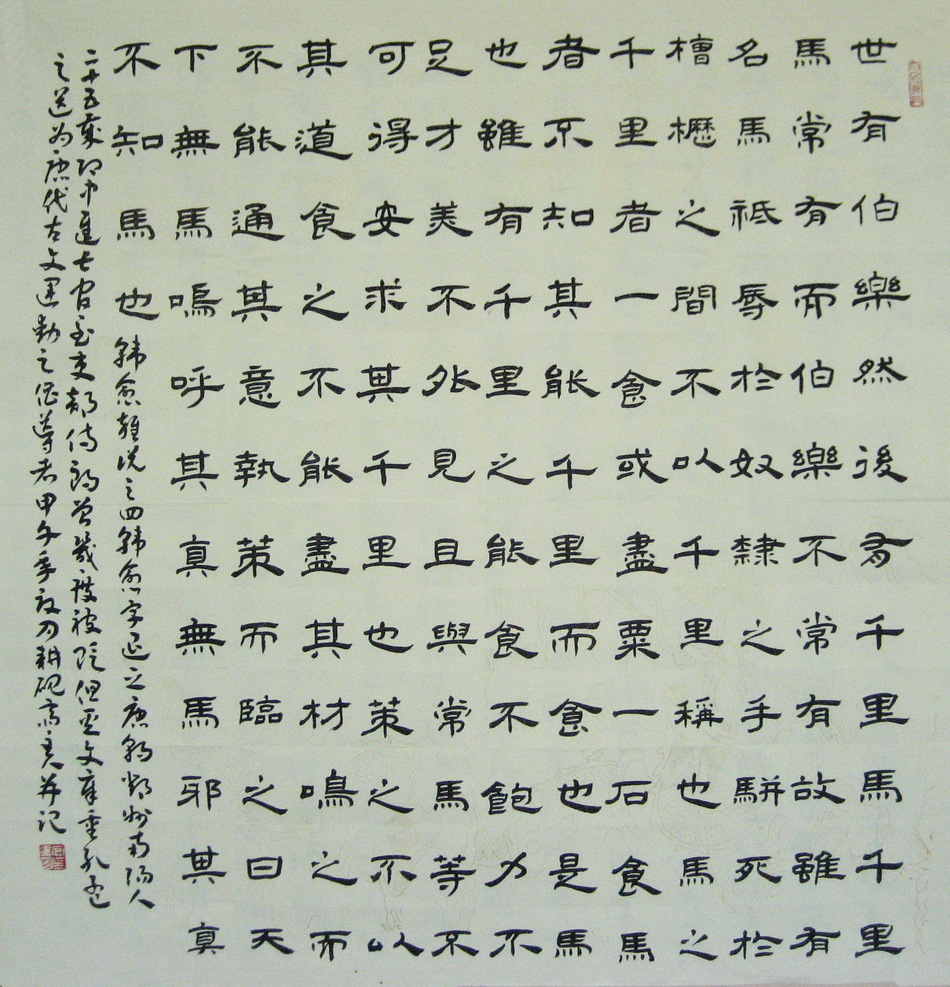 世有伯樂然後有千里馬千里
馬常有而伯樂不常有故雖有
名馬祗辱於奴隸之手駢死於
槽櫪之間不以千里稱也馬之
千里者一食或盡粟一石食馬
者不知其能千里而食也是馬
也雖有千里之能食不飽力不
足才美不外見且與常馬等不
可得安求其千里也策之不以
其道食之不能盡其材鳴之而
不能通其意執策而臨之曰天
下無馬嗚呼其真無馬邪其真
不知馬也
韓愈雜說之四韓愈字退之唐朝鄧州南陽人
二十五歲即中進士官至吏部侍郎曾幾度被貶但文章重孔孟
之道为唐代古文運動之倡導者甲午年刀耕硯斎并记